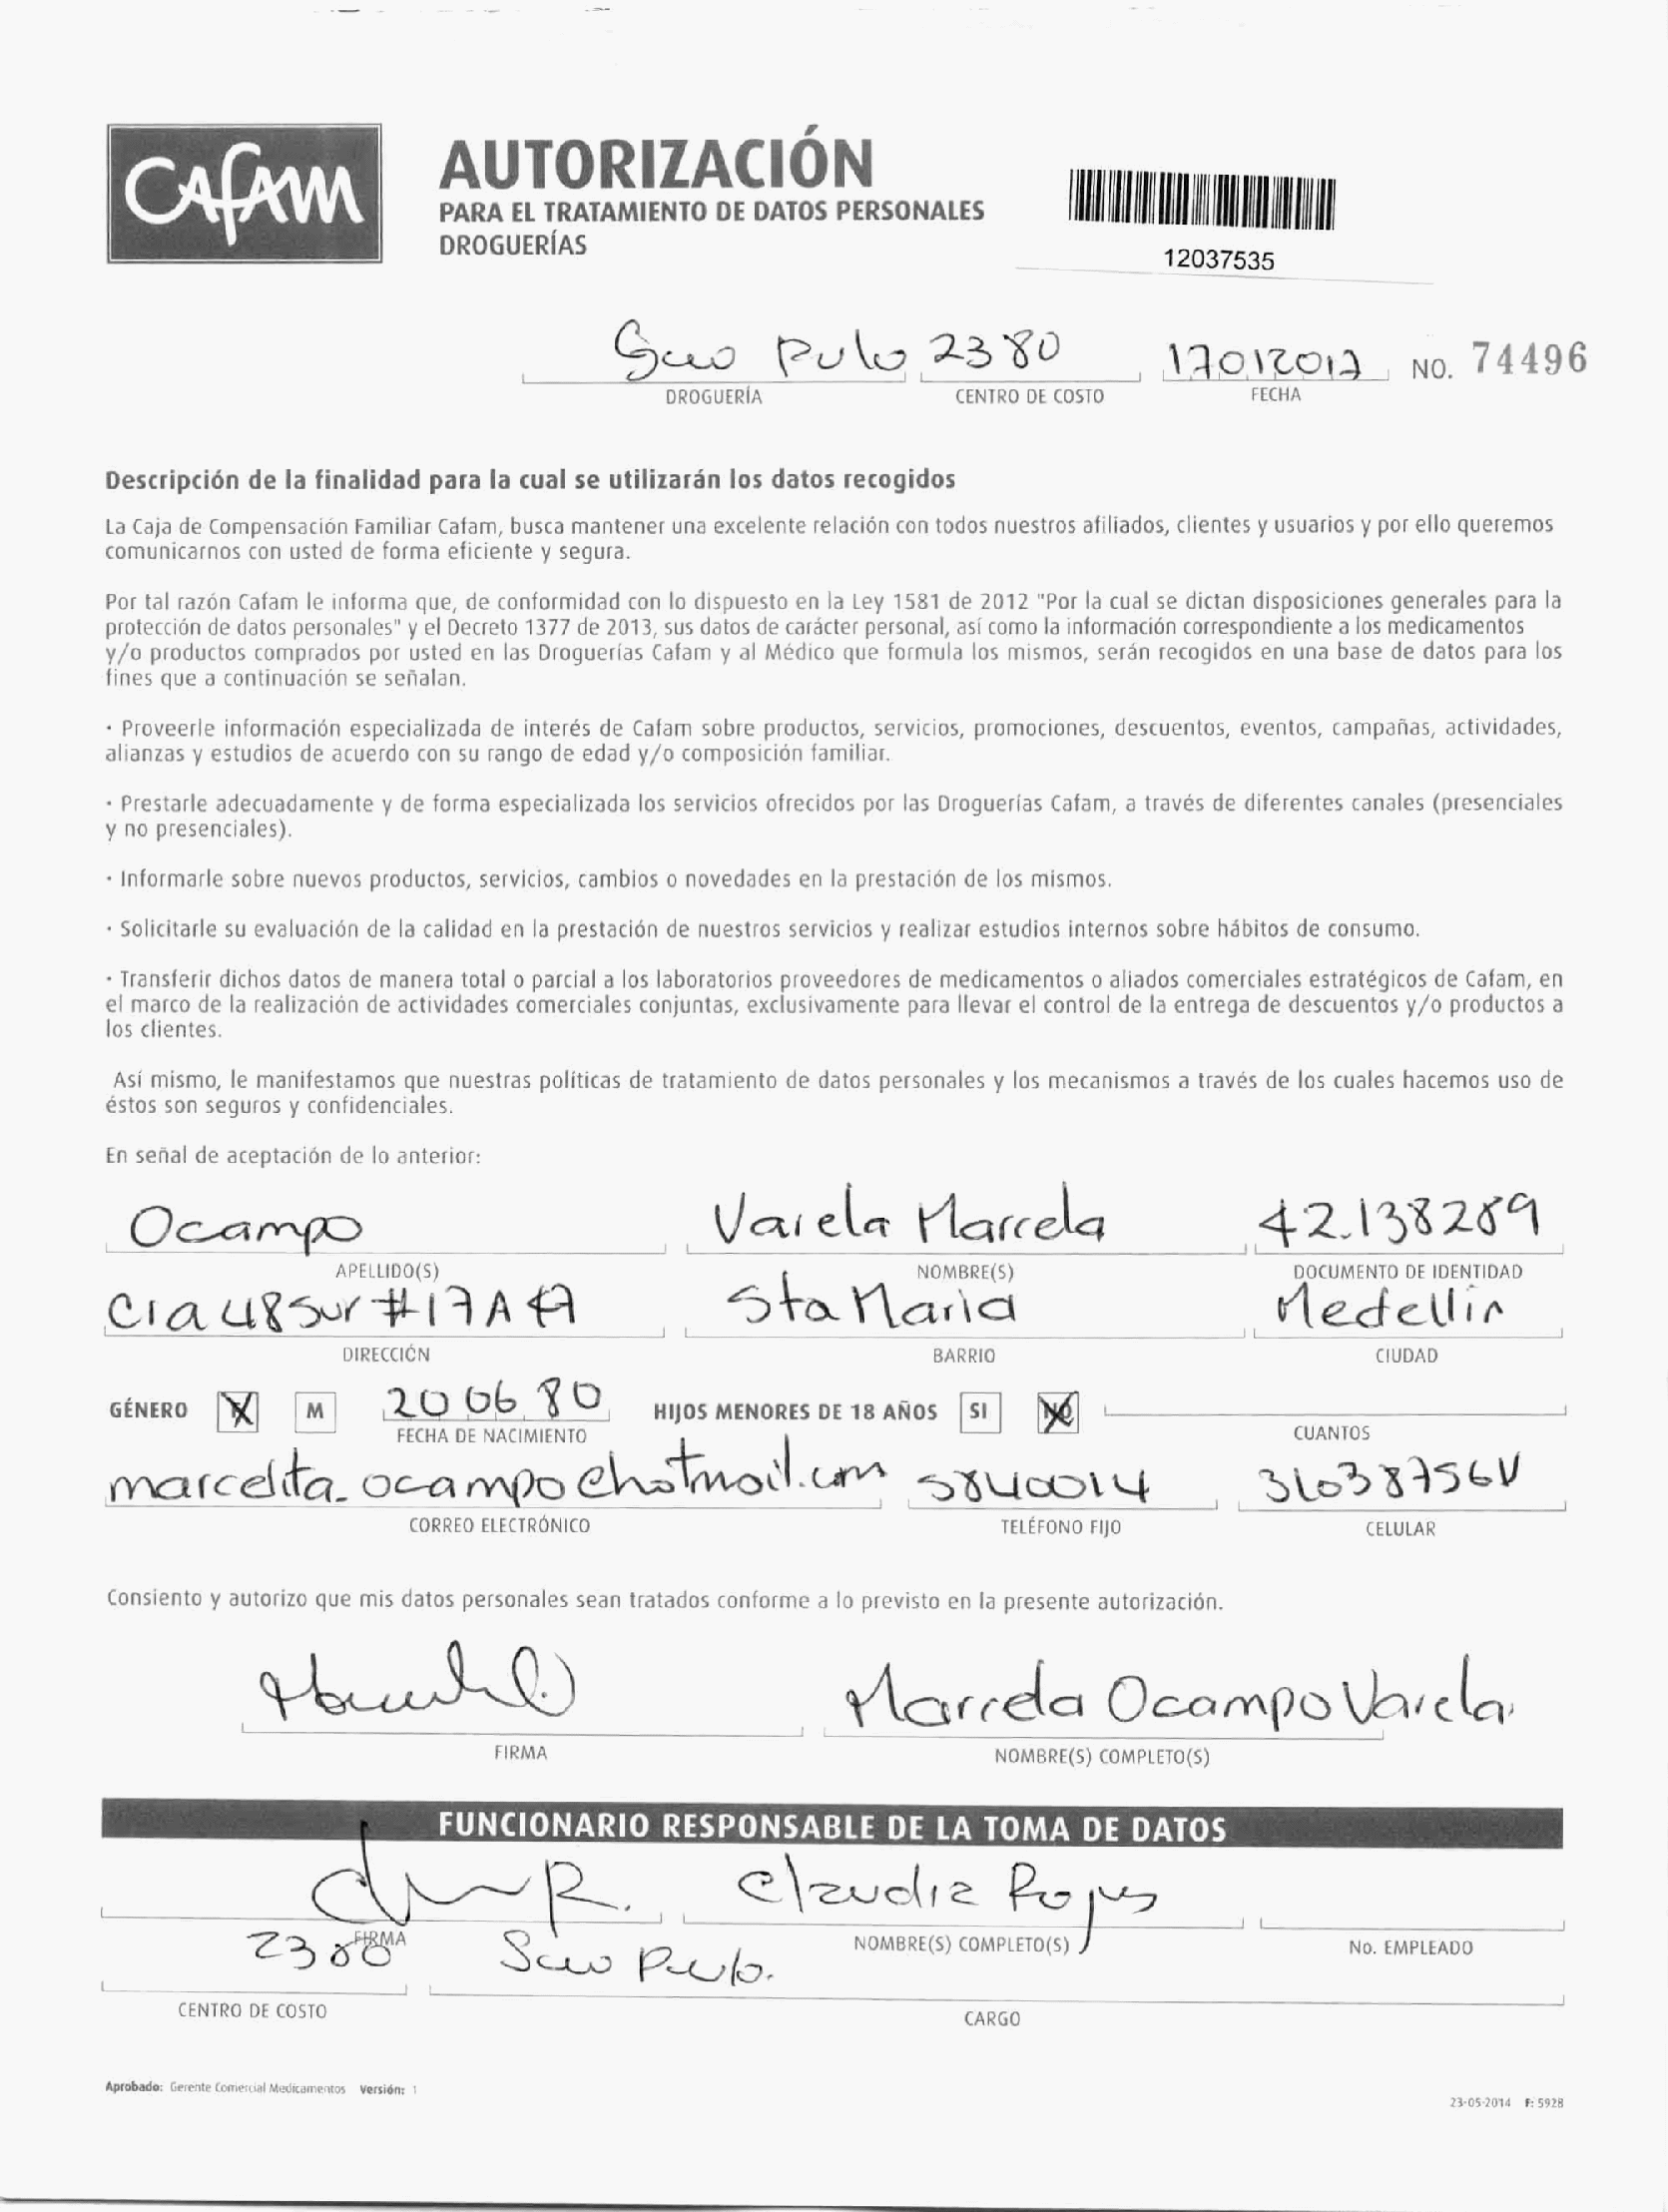 CAFAM
AUTORIZACIÓN
PARA EL TRATAMIENTO DE DATOS PERSONALES
DROGUERÍAS
12037535
Sao Pulo 2380 17012017 NO. 74496
DROGUERÍA CENTRO DE COSTO FECHA
Descripción de la finalidad para la cual se utilizarán los datos recogidos
La Caja de Compensación Familiar Cafam, busca mantener una excelente relación con todos nuestros afiliados, clientes y usuarios y por ello queremos
comunicarnos con usted de forma eficiente y segura.
Por tal razón Cafam le informa que, de conformidad con lo dispuesto en la Ley 1581 de 2012 "Por la cual se dictan disposiciones generales para la
protección de datos personales" y el Decreto 1377 de 2013, sus datos de carácter personal, así como la información correspondiente a los medicamentos
y/o productos comprados por usted en las Droguerías Cafam y al Médico que formula los mismos, serán recogidos en una base de datos para los
fines que a continuación se señalan.
· Proveerle información especializada de interés de Cafam sobre productos, servicios, promociones, descuentos, eventos, campañas, actividades,
alianzas y estudios de acuerdo con su rango de edad y/o composición familiar.
· Prestarle adecuadamente y de forma especializada los servicios ofrecidos por las Droguerías Cafam, a través de diferentes canales (presenciales
y no presenciales).
· Informarle sobre nuevos productos, servicios, cambios o novedades en la prestación de los mismos.
· Solicitarle su evaluación de la calidad en la prestación de nuestros servicios y realizar estudios internos sobre hábitos de consumo.
· Transferir dichos datos de manera total o parcial a los laboratorios proveedores de medicamentos o aliados comerciales estratégicos de Cafam, en
el marco de la realización de actividades comerciales conjuntas, exclusivamente para llevar el control de la entrega de descuentos y/o productos a
los clientes.
Así mismo, le manifestamos que nuestras políticas de tratamiento de datos personales y los mecanismos a través de los cuales hacemos uso de
éstos son seguros y confidenciales.
En señal de aceptación de lo anterior:
Ocampo Varela Marcela 42.138289
APELLIDO(S) NOMBRE(S) DOCUMENTO DE IDENTIDAD
Cra 48 Sur #17A Sta Maria Medellin
DIRECCIÓN BARRIO CIUDAD
GÉNERO F M 200680 HIJOS MENORES DE 18 AÑOS SI NO
FECHA DE NACIMIENTO CUANTOS
marcelita_ocampo@hotmail.com 5840014
CORREO ELECTRÓNICO TELÉFONO FIJO CELULAR
Consiento y autorizo que mis datos personales sean tratados conforme a lo previsto en la presente autorización.
Marcela Ocampo Varela
FIRMA NOMBRE(S) COMPLETO(S)
FUNCIONARIO RESPONSABLE DE LA TOMA DE DATOS
Claudia Rojas
FIRMA NOMBRE(S) COMPLETO(S) No. EMPLEADO
2380 Sao Paulo.
CENTRO DE COSTO CARGO
Aprobado: Gerente Comercial Medicamentos Versión: 1
23-05-2014 F: 5928